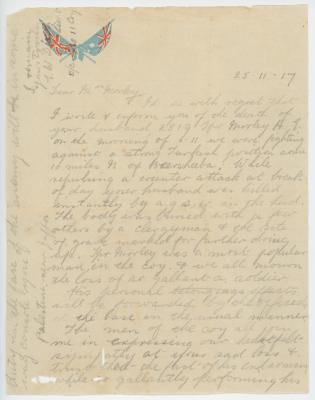 25-11-17
Dear Mrs Morley
It is with regret that
I write & inform you of the death of
your husband 2819 Tpr Morley H. G.
on the morning of 6-11. we were fighting
against a strong Turkish position some
10 miles N of Beersheba. While
repulsing a counter attack at break
of day your husband was killed
instantly by a g.s.w. in the head.
The body was buried with a few
others by a clergyman & the site
of grave marked for further
up. Tpr Morley was a most popular
man in the coy. & we all mourn
the loss of so gallant a soldier
His personal belongings effects
will be forwarded by
at the base in the usual manner.
The men of the coy all join
me in expressing our heartfelt
sympathy at your sad loss &
trust that the fact of his end coming
while so gallantly performing his
duty in the of the enemy will be in some
way consolation of
I remain
Yours truly
Palestine